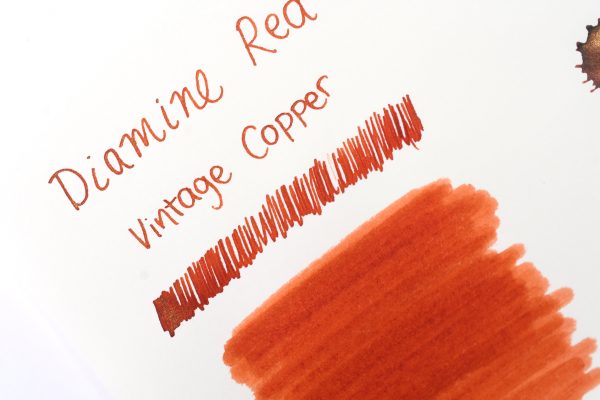 Diamine Red
Vintage Copper